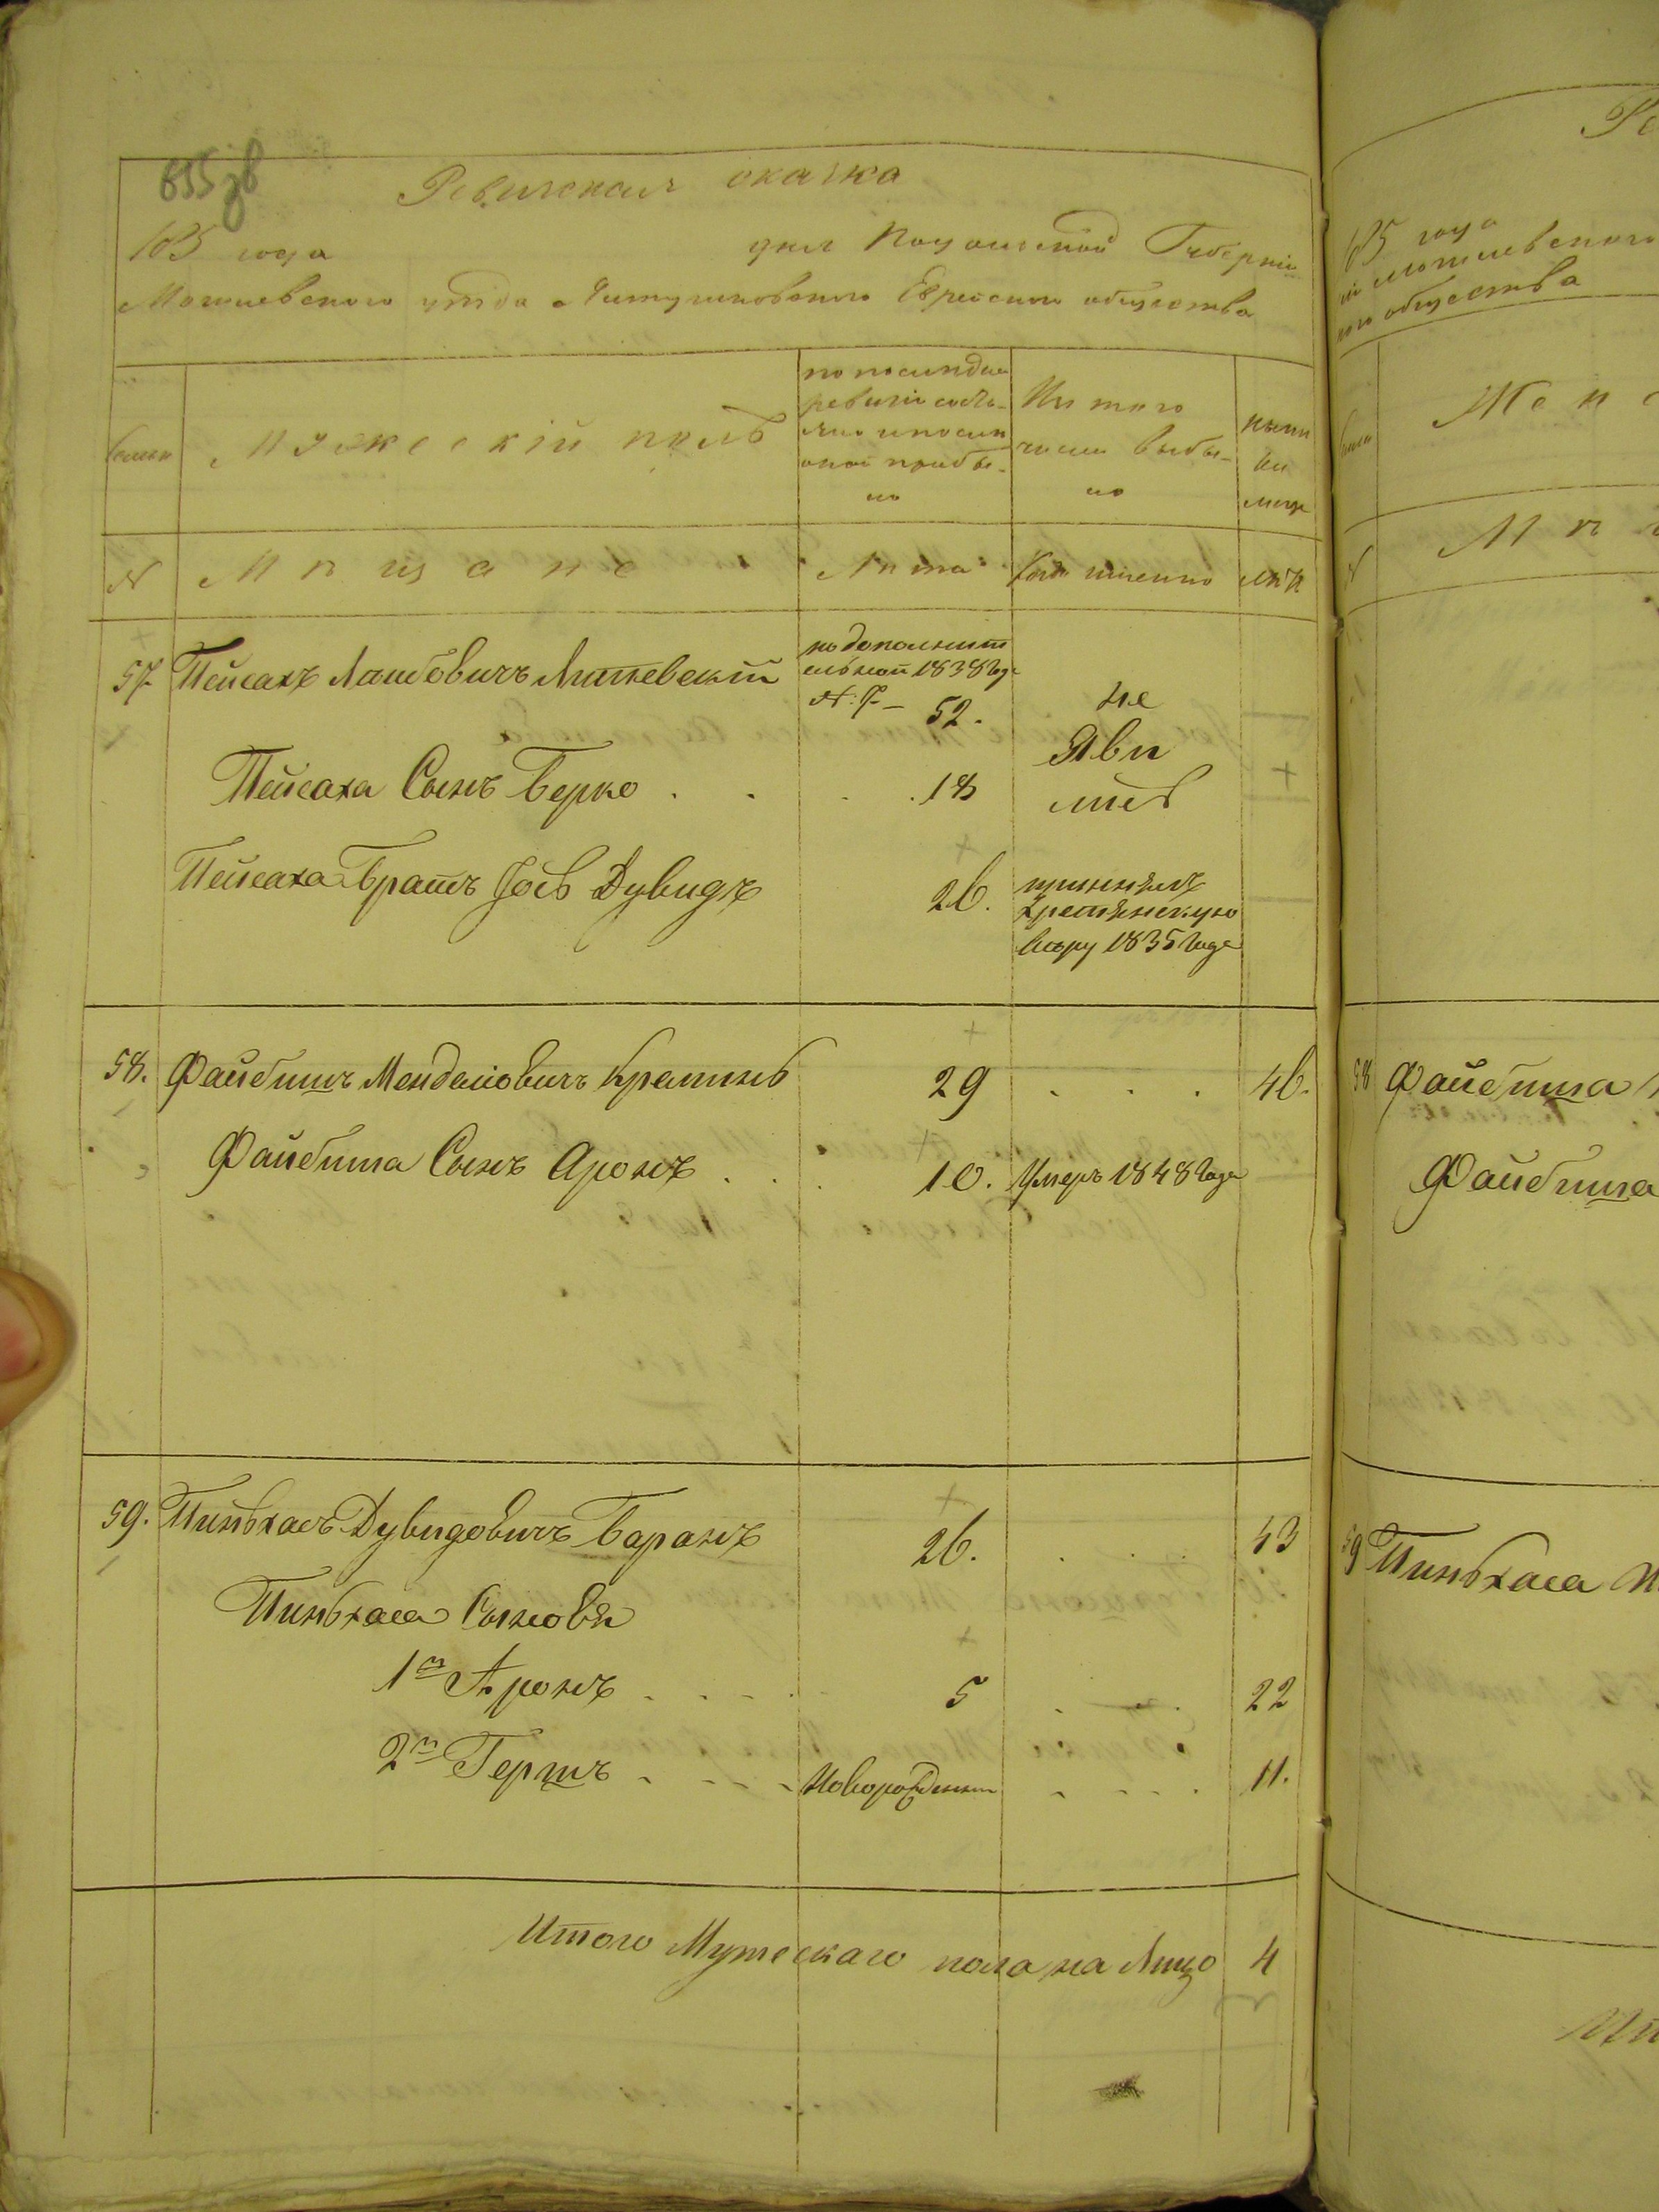 655 зв
Ревизская сказка
185 года дня Подольской Губернии
Могилевского уезда Еврейского общества
Мужеский полъ
по последней
ревизiи состо-
яло и после
оной прибы-
ло
Изъ того
числа выбы-
ло
ныне
на
лицо
№
Мещане
Лета
Когда именно
лета
57. Пейсахъ Лейбовичъ
по дополнит
ельной 1838 года
№ 7 – 52.
не
Яви
лись
Пейсаха Сынъ Берко . . . . 18
Пейсаха Братъ Iосъ Дувидъ 26.
принялъ
Хрестiянскую
веру 1835 Года
58. Файбишъ Менделiовичъ Кремiнь 29 . . . 46.
Файбиша Сынъ Аронъ . . . 10. Умеръ 1848 Года
59. Пиньхасъ Дувидовичъ Баранъ 26. . . . 43
Пиньхаса Сыновья
1й Аронъ . . . . 5 . . . 22
2й Гершъ - - - - Новорожденный . . . . 11.
Итого Мужескаго пола на Лицо 4
Ре
185 года
Могилевского
общества
Женс
№
58 Файбиша
Файбиша
59 Пиньхаса
Ит